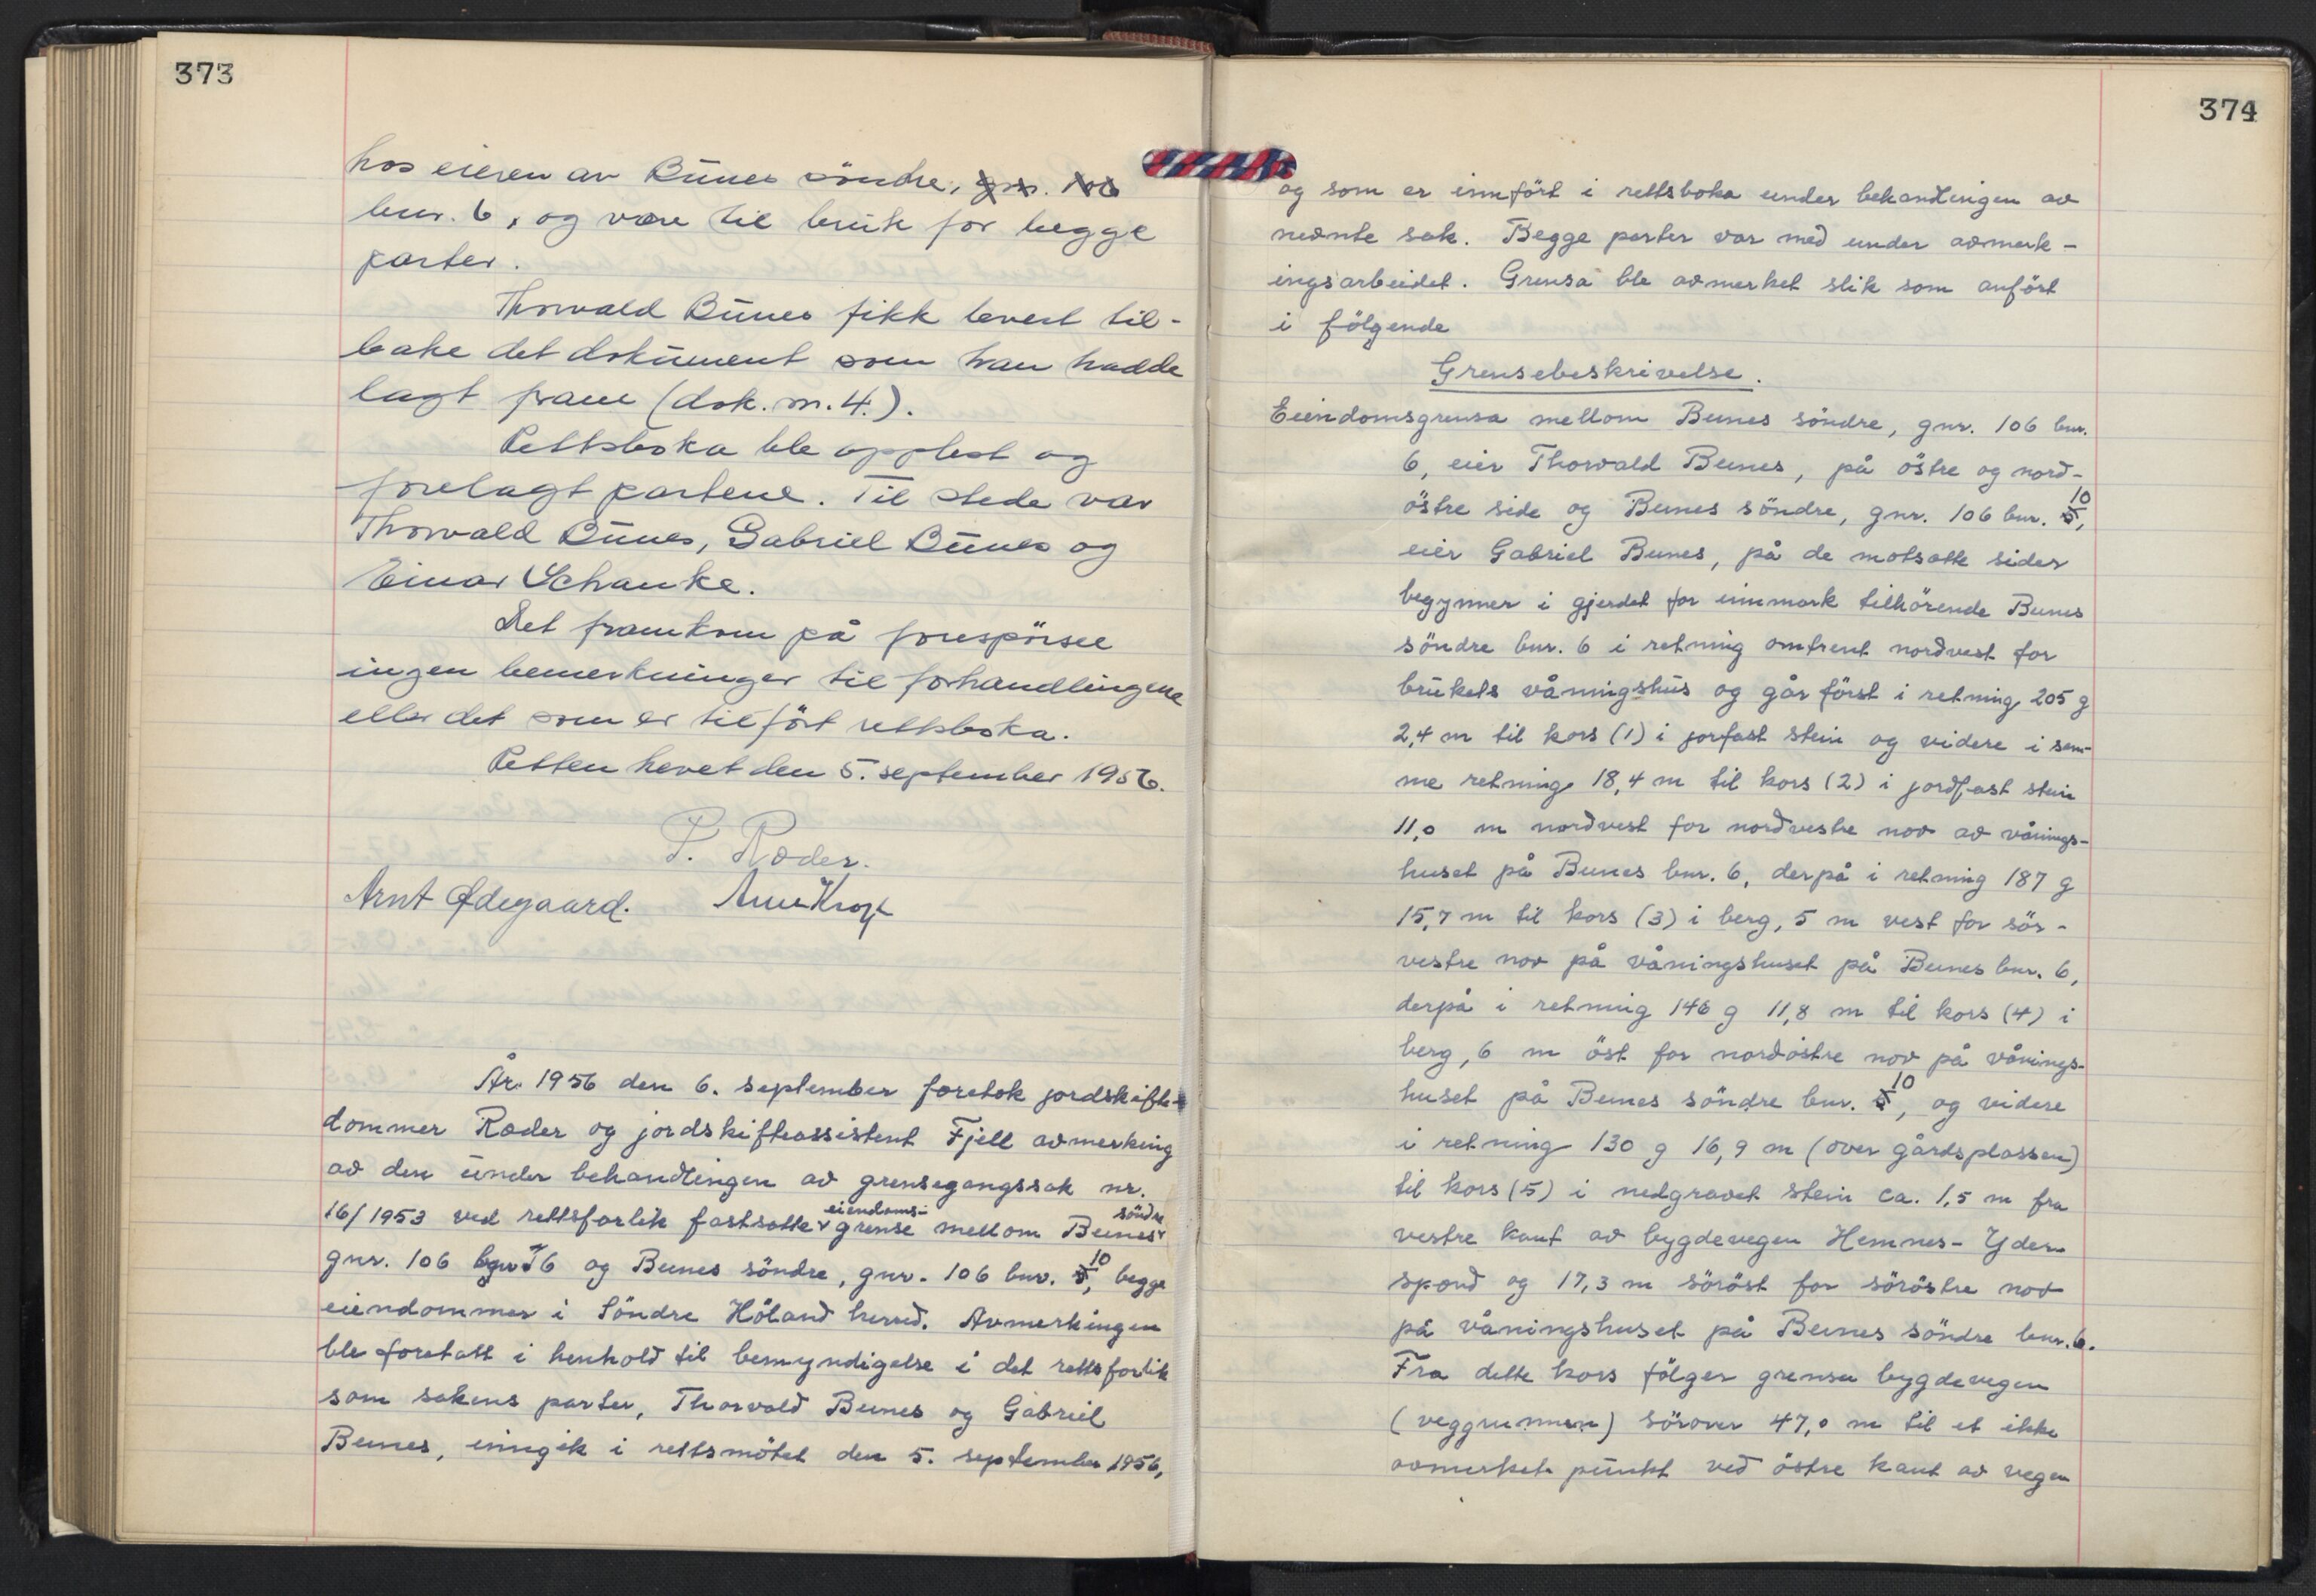 373
hos eieren av Bunes söndre, gnr. 106
bnr. 6, og være til bruk for begge
parter.
Thorvald Bunes fikk levert til-
bake det dokument som han hadde
lagt fram (dok. nr. 4.).
Rettsboka ble opplest og
forelagt partene. Til stede var
Thorvald Bunes, Gabriel Bunes og
Einar Schanke.
Det framkom på forespörsel
ingen bemerkninger til forhandlingene
eller det som er tilfört rettsboka.
Retten hevet den 5. september 1956.
P. Ræder.
Arnt Ødegaard.
År 1956 den 6. september foretok jordskifte-
dommer Ræder og jordskifteassistent Fjell avmerking
av den under behandlingen av grensegangssak nr.
16/1953 ved rettsforlik fastsatte eiendoms- grense mellom Bunes söndre
gnr. 106 bnr 6 og Bunes söndre, gnr. 106 bnr. 10, begge
eiendommer i Söndre Höland herred. Avmerkingen
ble foretatt i henhold til bemyndigelse i det rettsforlik
som sakens parter, Thorvald Bunes og Gabriel
Bunes, inngikk i rettsmötet den 5. september 1956,
374
og som er innfört i rettsboka under behandlingen av
nevnte sak. Begge parter var med under avmerk-
ingsarbeidet. Grensa ble avmerket slik som anfört
i fölgende
Grensebeskrivelse.
Eiendomsgrensa mellom Bunes söndre, gnr. 106 bnr.
6, eier Thorvald Bunes, på östre og nord-
östre side og Bunes söndre, gnr. 106 bnr. 10,
eier Gabriel Bunes, på de motsatte sider
begynner i gjerdet for innmark tilhörende Bunes
söndre bnr. 6 i retning omtrent nordvest for
brukets våningshus og går först i retning 205 g
2,4 m til kors (1) i jorfast stein og videre i sam-
me retning 18,4 m til kors (2) i jordfast stein
11,0 m nordvest for nordvestre nov av vånings-
huset på Bunes bnr. 6, derpå i retning 187 g
15,7 m til kors (3) i berg, 5 m vest for sör-
vestre nov på våningshuset på Bunes bnr. 6,
derpå i retning 146 g 11,8 m til kors (4) i
berg, 6 m öst for nordöstre nov på vånings-
huset på Bunes söndre bnr. 10, og videre
i retning 130 g 16,9 m (over gårdsplassen)
til kors (5) i nedgravet stein ca. 1,5 m fra
vestre kant av bygdevegen Hemnes-Yder-
spond og 17,3 m söröst for söröstre nov
på våningshuset på Bunes söndre bnr. 6.
Fra dette kors fölger grensa bygdevegen
(veggrunnen) sörover 47,0 m til et ikke
avmerket punkt ved östre kant av vegen